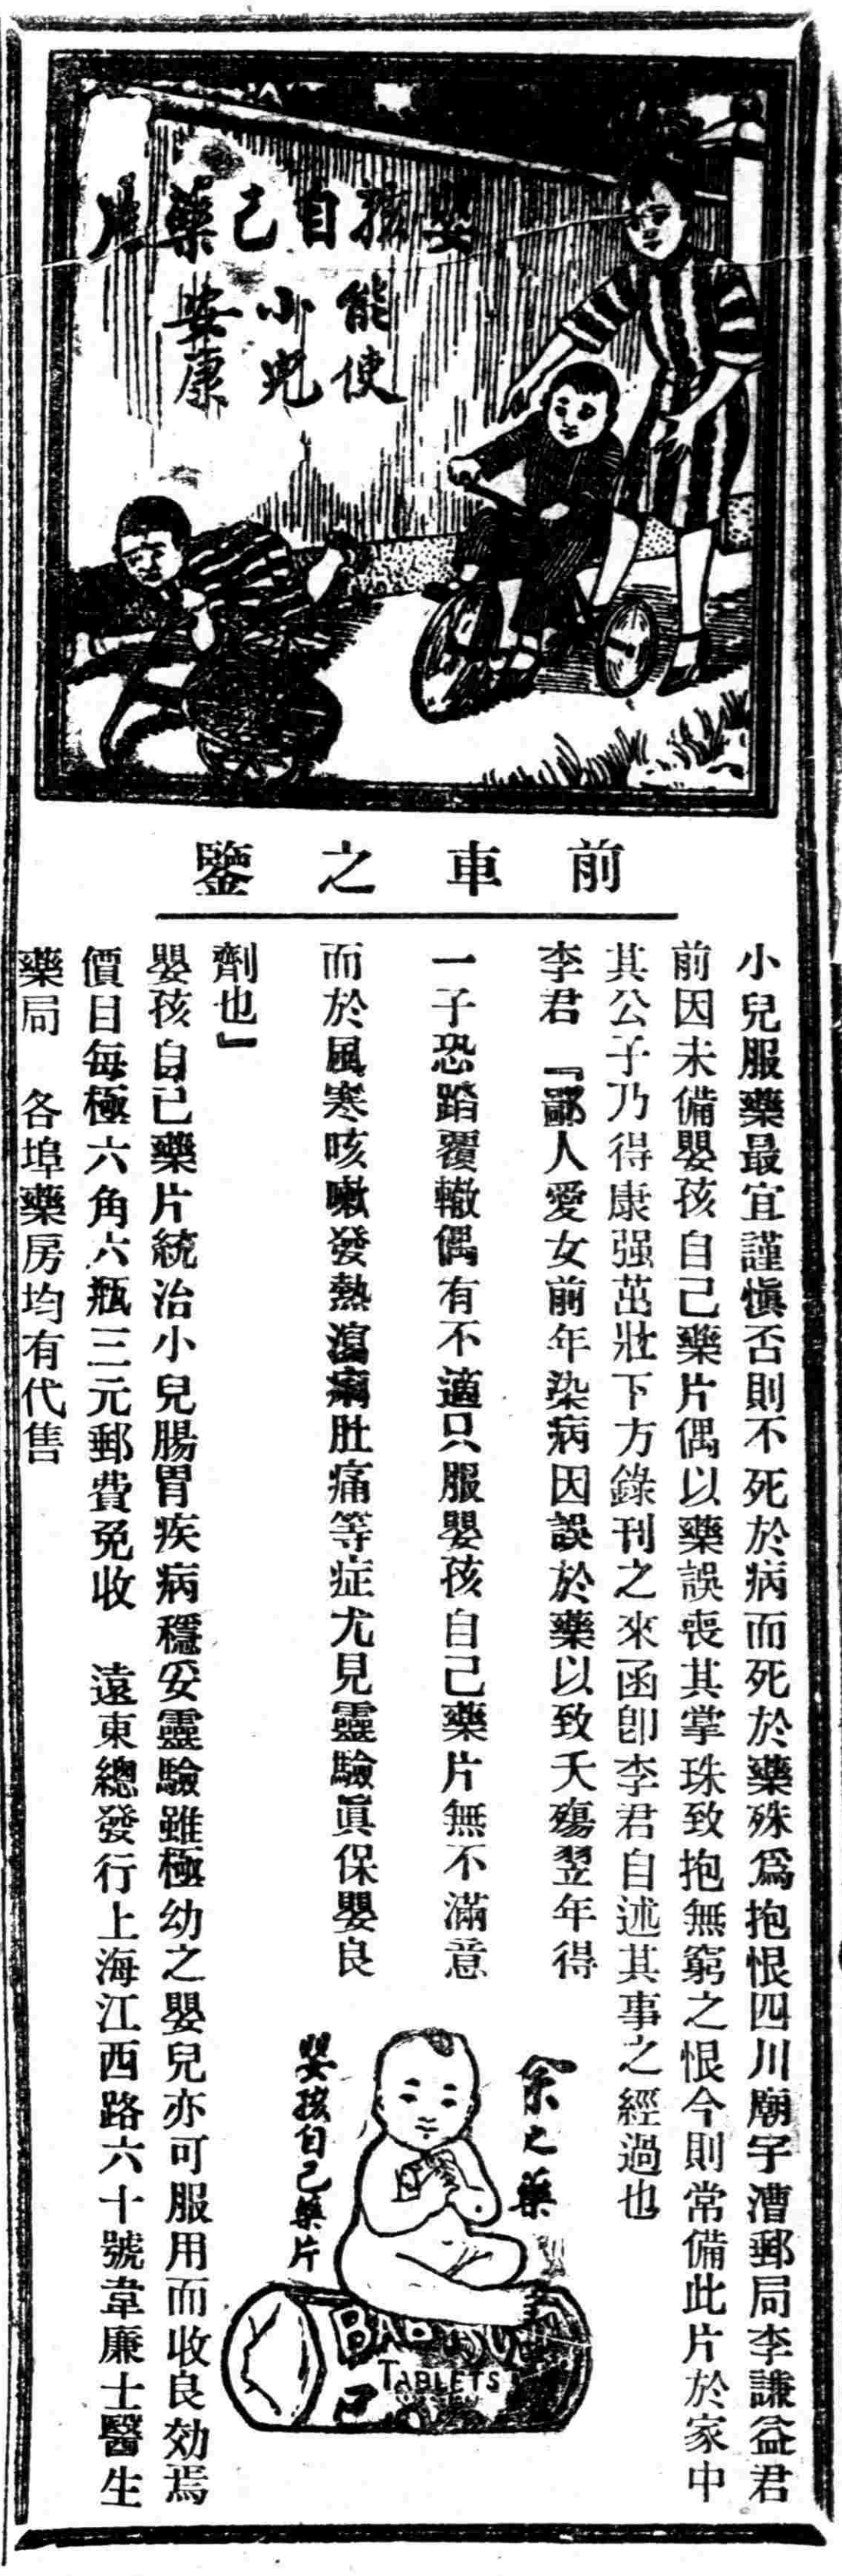 嬰孩自己藥片
能使
小兒
安康
前車之鑒
小兒服藥最宜謹愼否則不死於病而死於藥殊爲抱恨四川廟宇漕郵局李謙益君
前因未備嬰孩自己藥片偶以藥誤喪其掌珠致抱無窮之恨今則常備此片於家中
其公子乃得康强茁壯下方錄刊之來函卽李君自述其事之經過也
李君『鄙人愛女前年染病因誤於藥以致夭殤翌年得
一子恐踏覆轍偶有不適只服嬰孩自己藥片無不滿意
而於風寒咳嗽發熱瀉痢肚痛等症尤見靈驗眞保嬰良
劑也』
嬰孩自己藥片統治小兒腸胃疾病穩妥靈驗雖極幼之嬰兒亦可服用而收良効焉
價目每極六角六瓶三元郵費免收 遠東總發行上海江西路六十號韋廉士醫生
藥局 各埠藥房均有代售
余之藥
嬰孩自己藥片
TABLETS
己